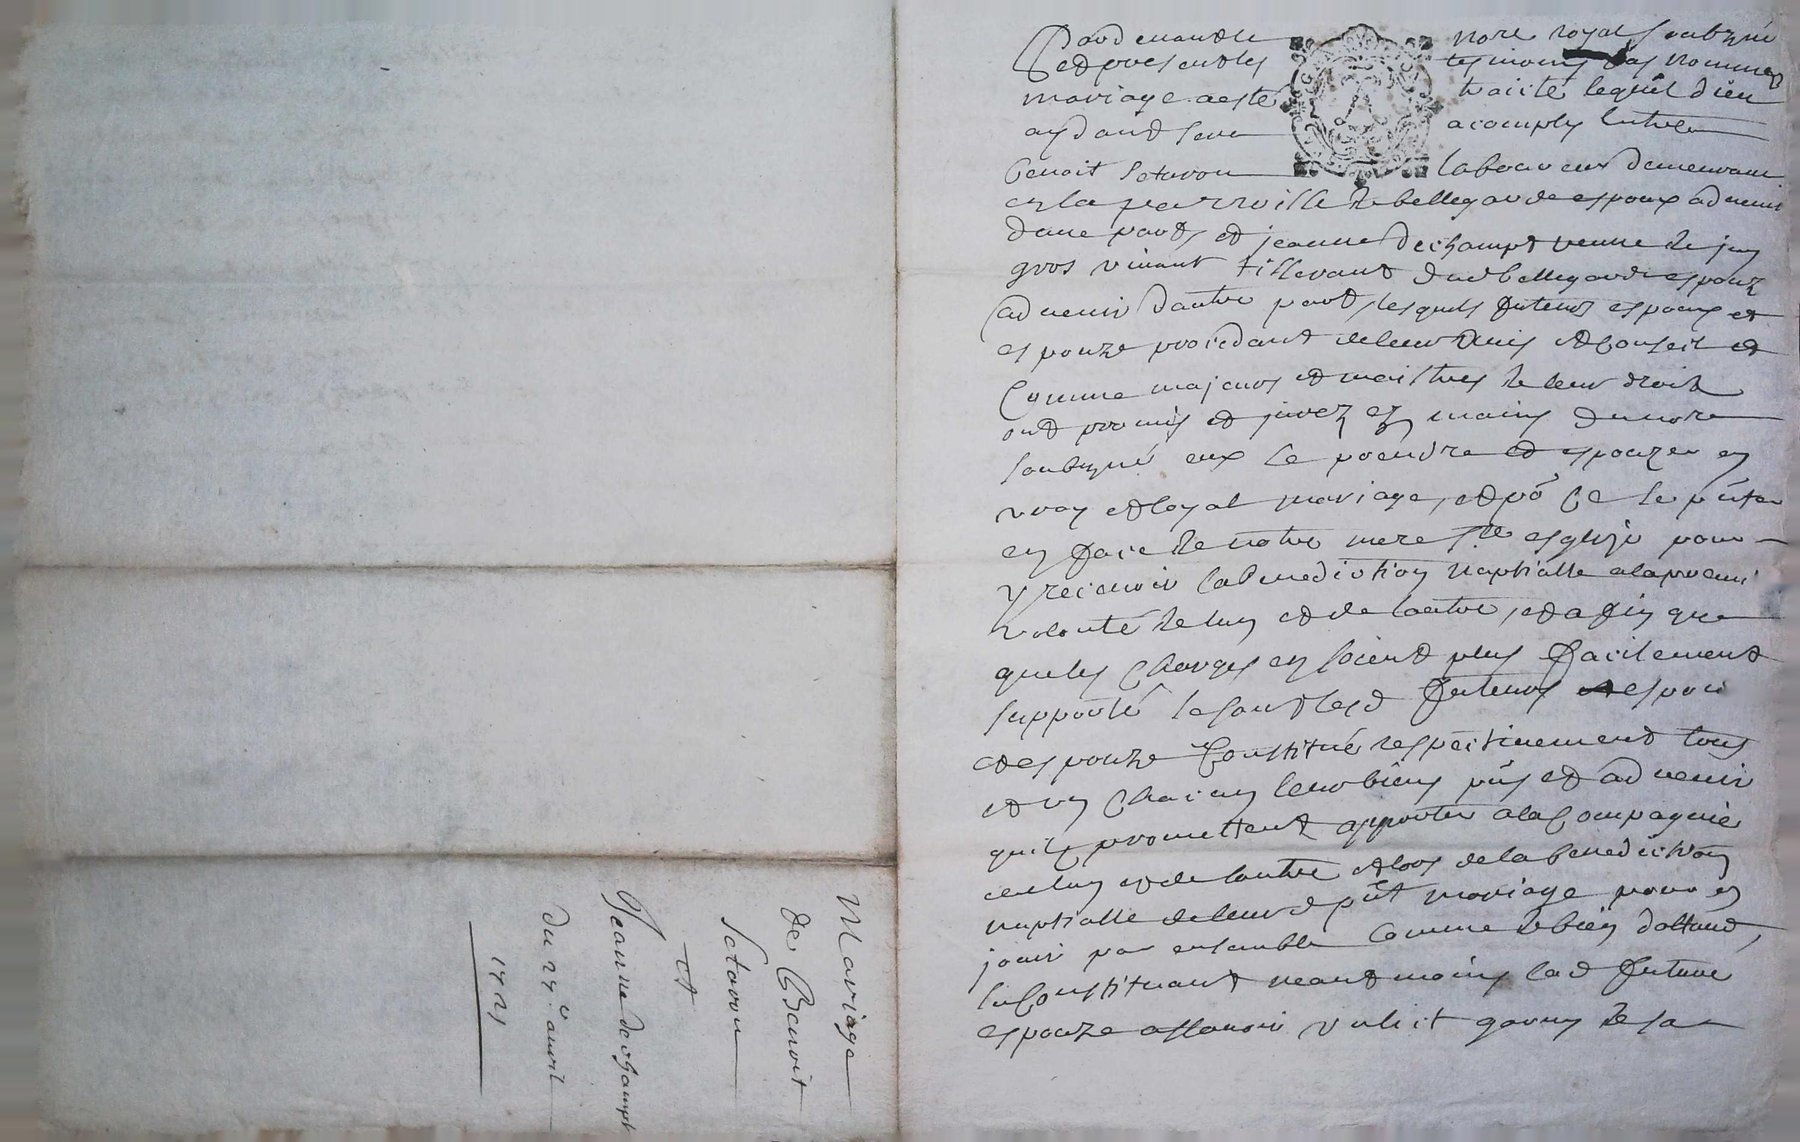 Pardevant le nore royal soubzné
Et presents les tesmoins bas nommez
mariage a esté traicté lequel dieu
aydant sera acomply Entre
Benoit Setavon laboureux demeurant
en la parroisse de bellegarde espoux advenir
dune part, et jeanne dechampt veuve de jean
gros vivant tisserant dud bellegarde espouze
advenir dautre part, lesquels futeurs espoux et
espouze procedant de leur advis et Conseil et
Comme majeurs et maistres de leur droits
ont promis et jurez ez mains du nore
soubzné eux se prendre et espouzer en
vray et loyal mariage, et po ce se pnter
en face de notre mere ste esglize pour
y recevoir la benediction nuptialle a la premi
volonté de lun et de lautre, et afin que
que les charges en soient plus facilement
supporté se sont lesd futeurs espoux
et espouze Constitué respectivement tous
et un chacun leurs biens pnts et advenir
quilz promettent apporter a la Compagnie
de lun et de lautre et lors de la benediction
nuptialle de leurd pnt mariage pour en
jouir par ensamble Comme de bien dottaux,
se Constituant neantmoins lad future
espouze assavoir un lict garny de sa
Mariage
de Benoit
Setavon
et
Jeanne dechampt
du 27e avril
1721